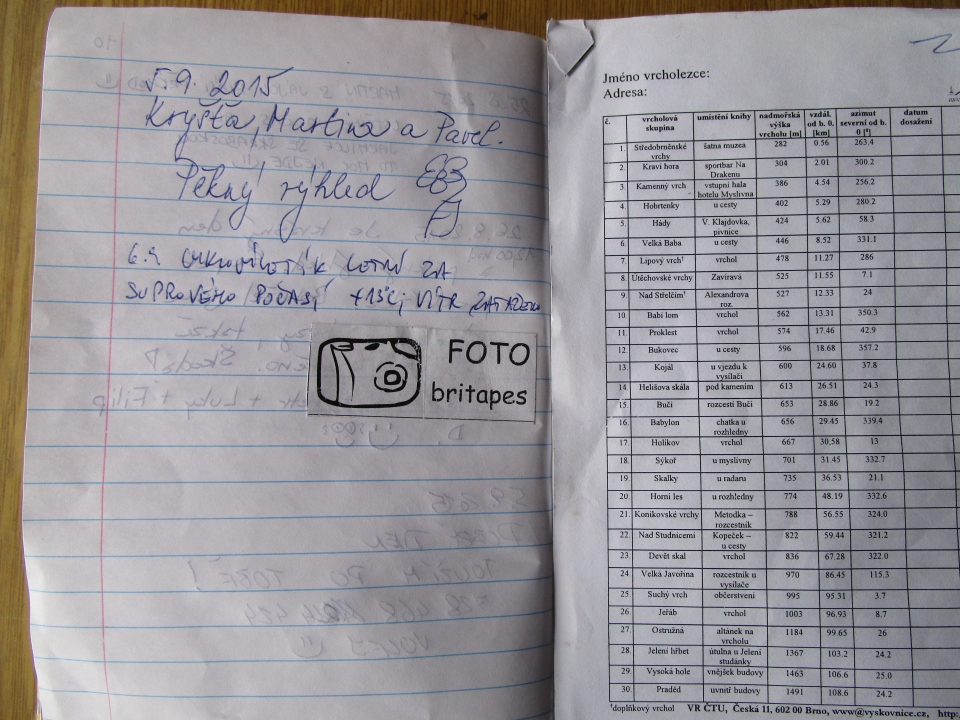 5.9. 2015
Kryšťa, Martina a Pavel.
Pěkný výhled
6.9
ZA
SUPROVÉHO POČASÍ +15°C, VÍTR ZATAŽENO
FOTO
britapes
Jméno vrcholezce:
Adresa:
č. vrcholová skupina umístění knihy nadmořská výška vrcholu [m] vzdál. od h. 0, [km] azimut severní od b. 0 [°] datum dosažení
1. Středobrněnské vrchy šatna muzea 282 0.56 263.4
2. Kraví hora sportbar Na Drakenu 304 2.01 300.2
3. Kamenný vrch vstupní hala hotelu Myslivna 386 4.54 256.2
4. Hobrtenky u cesty 402 5.29 280.2
5. Hády V. Klajdovka, pivnice 424 5.62 58.3
6. Velká Baba u cesty 446 8.52 331.1
7. Lipový vrch† vrchol 478 11.27 286
8. Útěchovské vrchy Zavíravá 525 11.55 7.1
9. Nad Střelčím† Alexandrova roz. 527 12.33 24
10. Babí lom vrchol 562 13.31 350.3
11. Proklest vrchol 574 17.46 42.9
12. Bukovec u cesty 596 18.68 357.2
13. Kojál u vjezdu k vysílači 600 24.60 37.8
14. Helišova skála pod kamením 613 26.51 24.3
15. Bučí rozcestí Bučí 653 28.86 19.2
16. Babylon chatka u rozhledny 656 29.45 339.4
17. Holíkov vrchol 667 30,58 13
18. Sýkoř u myslivny 701 31.45 332.7
19. Skalky u radaru 735 36.53 21.1
20. Horní les u rozhledny 774 48.19 332.6
21. Koníkovské vrchy Metodka – rozcestník 788 56.55 324.0
22. Nad Studnicemi Kopeček – u cesty 822 59.44 321.2
23. Devět skal vrchol 836 67.28 322.0
24 Velká Javořina rozcestník u vysílače 970 86.45 115.3
25. Suchý vrch občerstvení 995 95.31 3.7
26. Jeřáb vrchol 1003 96.93 8.7
27. Ostružná altánek na vrcholu 1184 99.65 26
28. Jelení hřbet útulna u Jelení studánky 1367 103.2 24.2
29. Vysoká hole vnějšek budovy 1463 106.6 25.0
30. Praděd uvnitř budovy 1491 108.6 24.2
†doplňkový vrchol VR ČTU, Česká 11, 602 00 Brno, www@vyskovnice.cz, http: